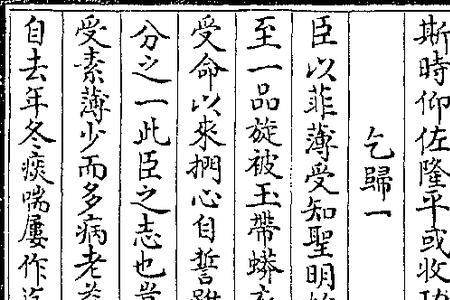 斯時仰佐隆平或收
乞歸一
臣以菲薄受知聖明
至一品旋被玉帶蟒
受命以來捫心自誓
分之一此臣之志也
受素薄少而多病老
自去年冬痰喘屢作